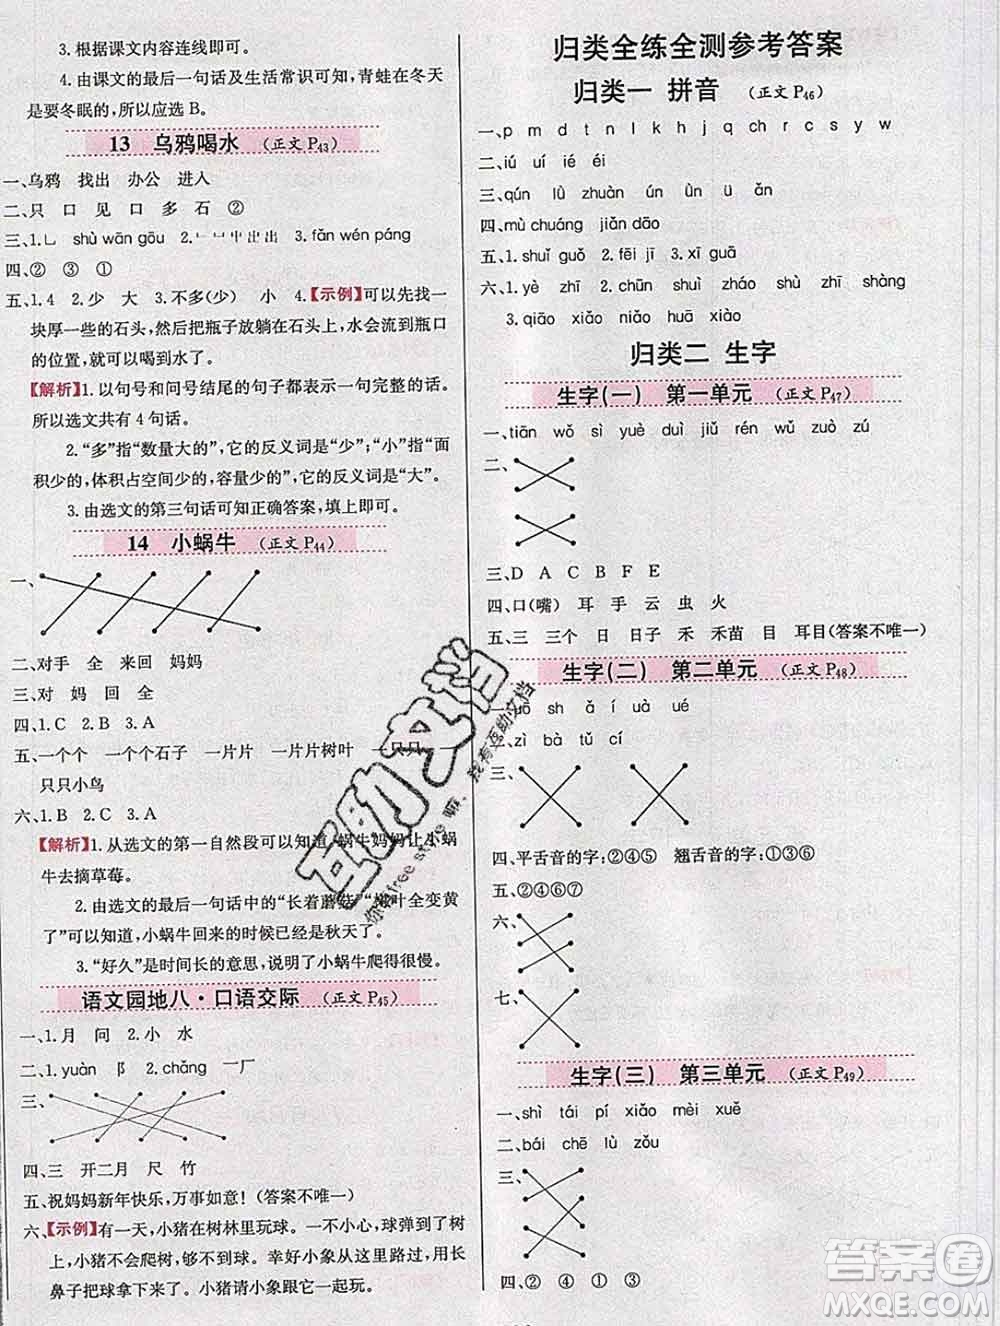 3. 根据课文内容连线即可。
4. 由课文的最后一句话及生活常识可知,青蛙在冬天
是要冬眠的,所以应选 B。
13 乌鸦喝水 (正文 P43)
一、乌鸦 找出 办公 进入
二、只 口 见 口 多 石 ②
三、1.乚 shù wān gōu 2. 出出 3. fǎn wén páng
四、② ③ ①
五、1. 4 2. 少 大 3. 不多(少) 小 4.【示例】可以先找一
块厚一些的石头,然后把瓶子放躺在石头上,水会流到瓶口
的位置,就可以喝到水了。
【解析】1. 以句号和问号结尾的句子都表示一句完整的话。
所以选文共有 4 句话。
2. “多”指“数量大的”,它的反义词是“少”;“小”指“面
积少的,体积占空间少的,容量少的”,它的反义词是“大”。
3. 由选文的第三句话可知正确答案,填上即可。
14 小蜗牛 (正文 P44)
一、
二、对手 全 来回 妈妈
三、对 妈 回 全
四、1. C 2. B 3. A
五、一个个 一个个石子 一片片 一片片树叶 一只只 一
只只小鸟
六、1. B 2. C 3. A
【解析】1. 从选文的第一自然段可以知道,蜗牛妈妈让小蜗
牛去摘草莓。
2. 由选文的最后一句话中的“长着蘑菇”“树叶全变黄
了”可以知道,小蜗牛回来的时候已经是秋天了。
3. “好久”是时间长的意思,说明了小蜗牛爬得很慢。
语文园地八·口语交际 (正文 P45)
一、1. 月 问 2. 小 水
二、1. yuàn 阝 2. chǎng 一厂
三、
四、三 开二月 尺 竹
五、祝妈妈新年快乐,万事如意!(答案不唯一)
六、【示例】有一天,小猪在树林里玩球。一不小心,球弹到了树
上,小猪不会爬树,够不到球。幸好小象从这里路过,它用长
鼻子把球拿了下来。小猪请小象跟它一起玩。
归类全练全测参考答案
归类一 拼音 (正文 P46)
一、p m d t n l k h j q ch r c s y w
二、iú uí ié éi
三、qún lù zhuàn ún ùn ǔ ǎn
四、mù chuáng jiǎn dāo
五、1. shuǐ guǒ 2. fēi jī 3. xī guā
六、1. yè zhī 2. chūn shuì zháo shù zhī shàng
3. qiāo xiǎo niǎo huā xiào
归类二 生字
生字(一) 第一单元 (正文 P47)
一、tiān wǒ sì yuè duì jiǔ rén wǔ zuò zú
二、
三、D A C B F E
四、口(嘴) 耳 手 云 虫 火
五、三 三个 日 日子 禾 禾苗 目 耳目(答案不唯一)
生字(二) 第二单元 (正文 P48)
sh ǎ í uà ué
二、zì bà tǔ cí
三、
四、平舌音的字:②④⑤ 翘舌音的字:①③⑥
五、②④⑥⑦
六、
七、
生字(三) 第三单元 (正文 P49)
一、shì tái pí xiǎo mèi xuě
二、bái chē lù zǒu
三、
四、② ④ ① ③
互助文档
你de free store 嘛,我有互助文档
答案圈
MXQE.COM